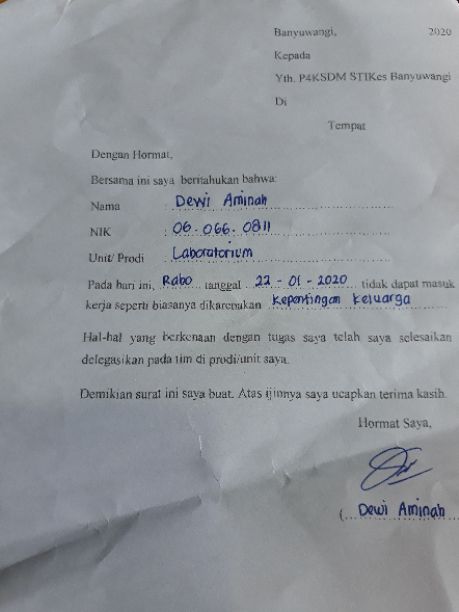 Banyuwangi, 2020
Kepada
Yth. P4KSDM STIKes Banyuwangi
Di
Tempat
Dengan Hormat,
Bersama ini saya beritahukan bahwa:
Nama : Dewi Aminah
NIK : 06.066.0811
Unit/ Prodi : Laboratorium
Pada hari ini, Rabo tanggal 22 - 01 - 2020 tidak dapat masuk
kerja seperti biasanya dikarenakan Kepentingan Keluarga
Hal-hal yang berkenaan dengan tugas saya telah saya selesaikan
delegasikan pada tim di prodi/unit saya.
Demikian surat ini saya buat. Atas ijinnya saya ucapkan terima kasih.
Hormat Saya,
(... Dewi Aminah